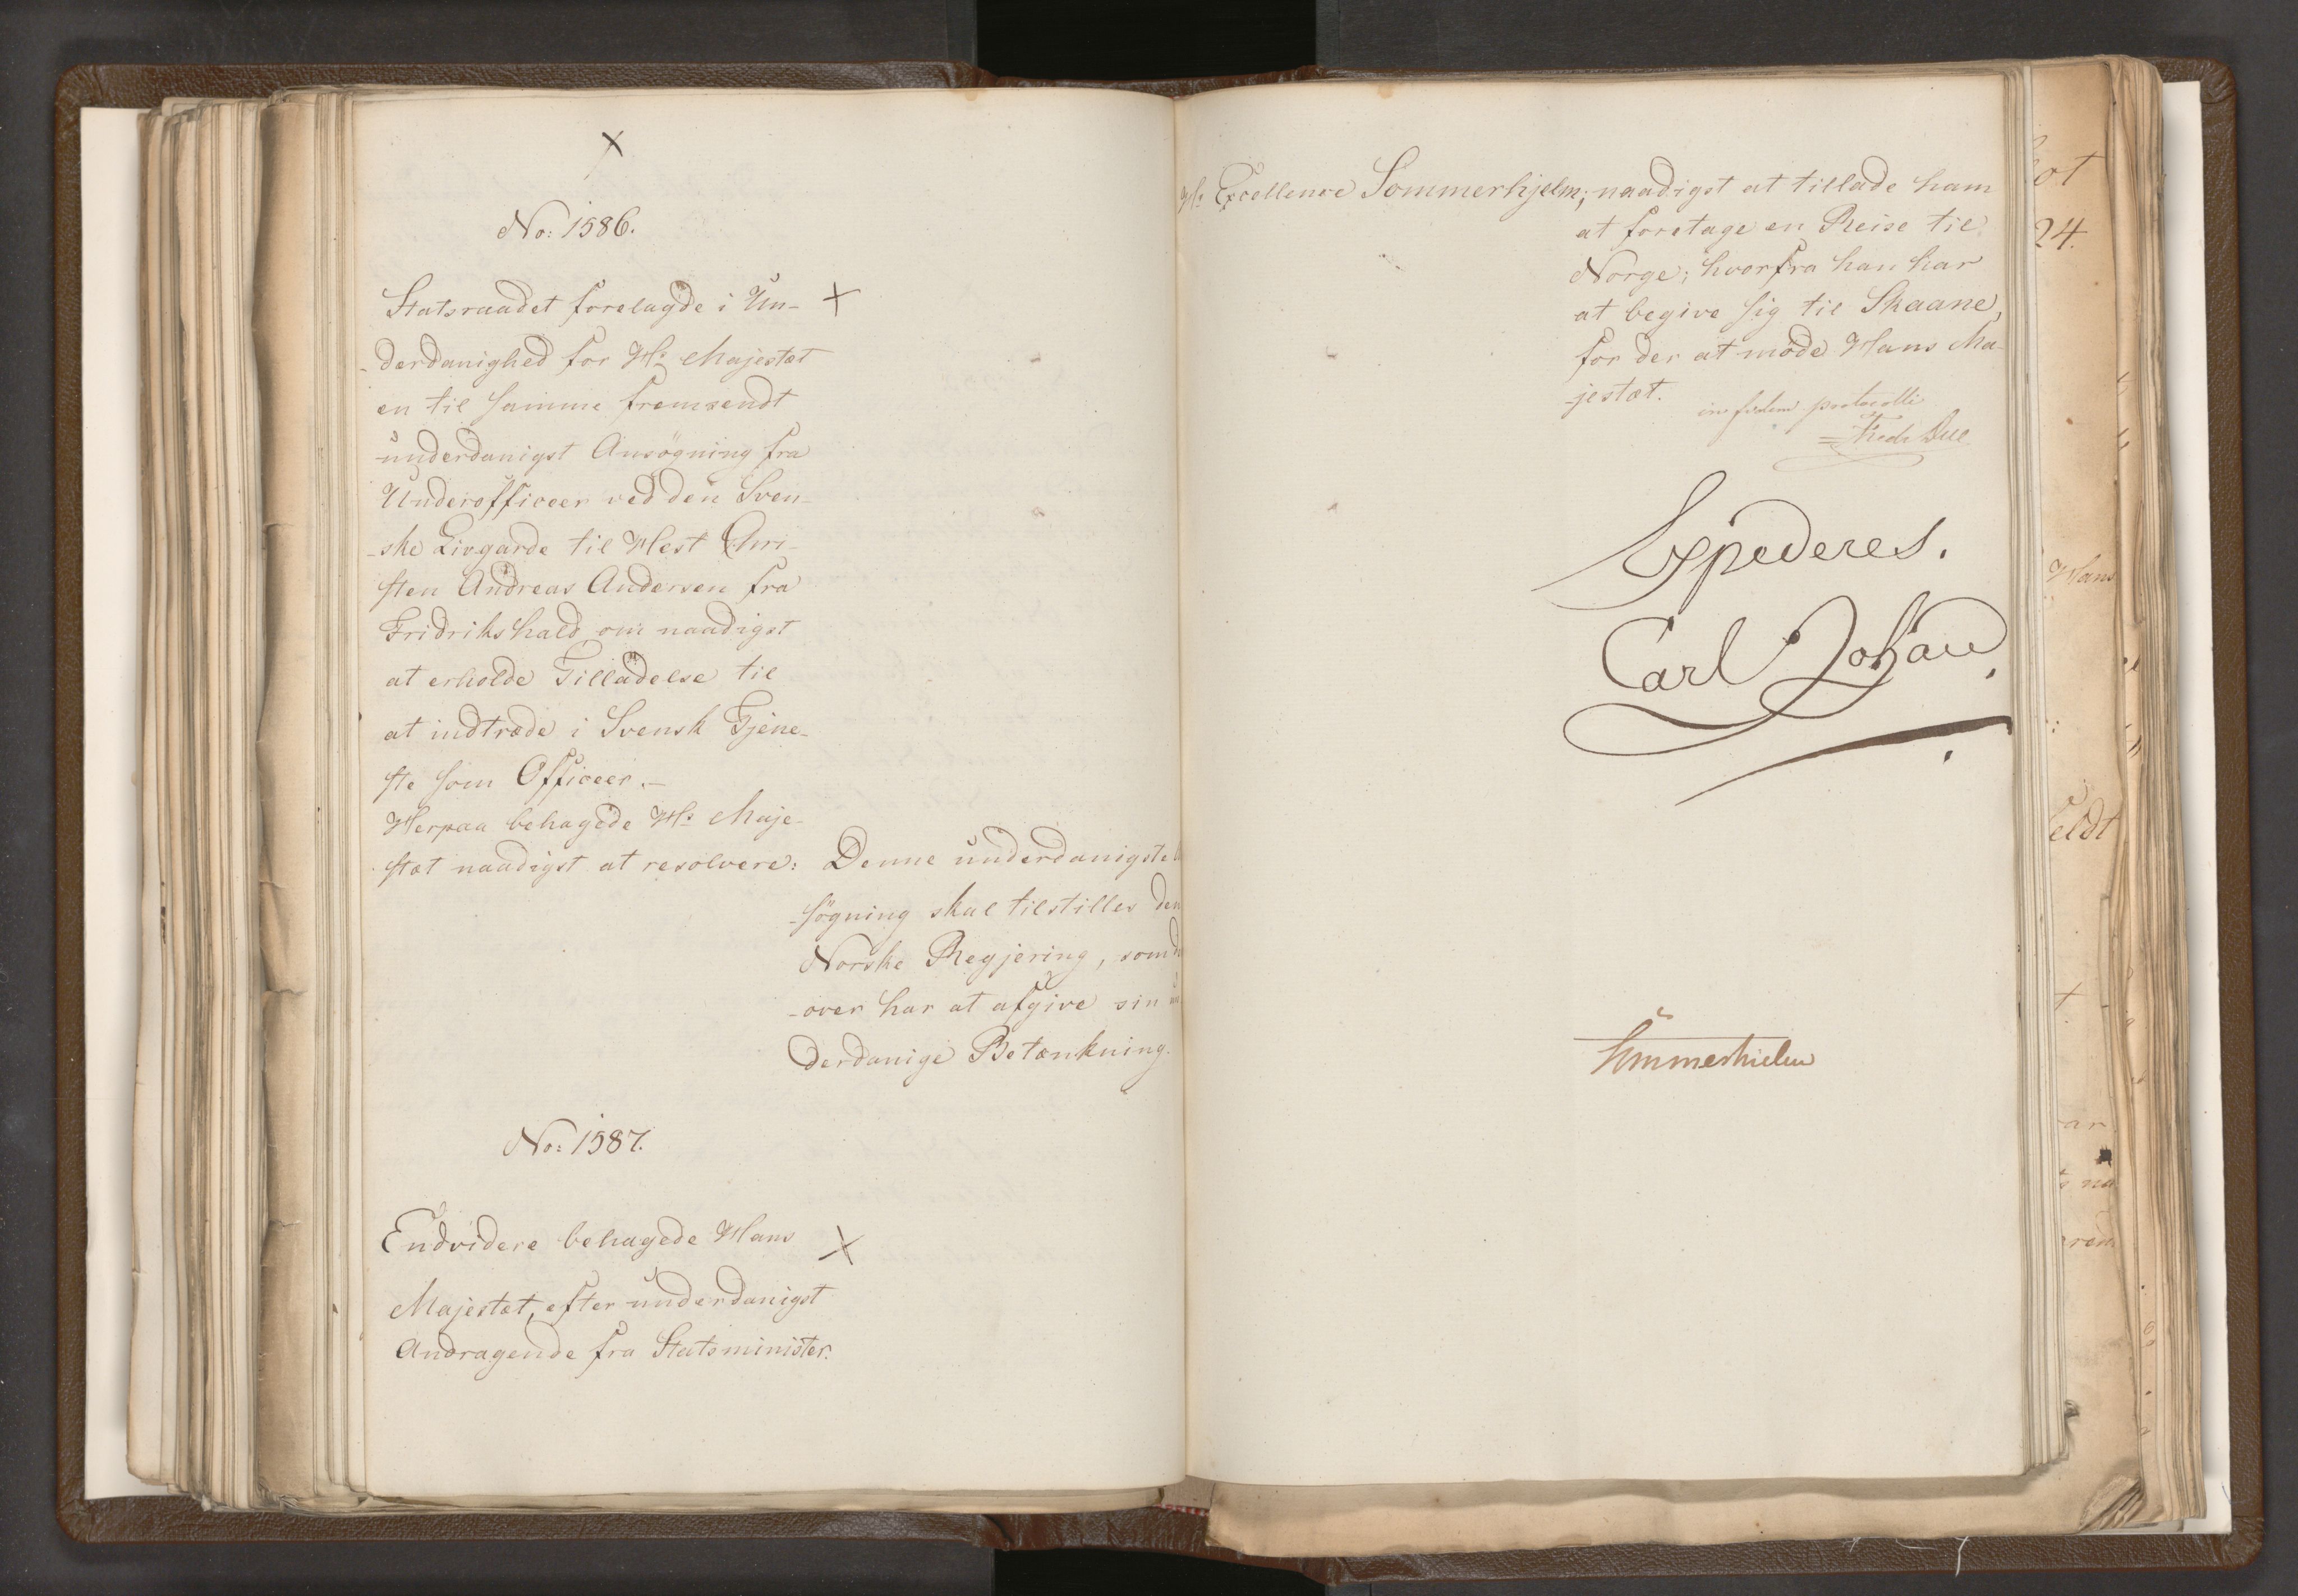 No: 1586.
Statsraadet forelagde i Un-
-derdanighed for Hs Majestæt
en til samme fremsendt
underdanigst Ansøgning fra
Underofficeer ved den Sven-
-ske Livgarde til Hest Chri-
sten Andreas Andersen fra
Fridrikshald om naadigst
at erholde Tilladelse til
at indtræde i Svensk Tjene-
ste som Officeer.-
Herpaa behagede Hs Maje-
stæt naadigst at resolvere:
Denne underdanigste
-søgning skal tilstilles den
Norske Regjering, som
-over har at afgive sin
derdanige Betænkning.
No: 1587.
Endvidere behagede Hans
Majestæt, efter underdanigst
Andragende fra Statsminister.
Hs Excellence Sommerhjelm; naadigst at tillade ham
at foretage en Reise til
Norge; hvorfra han har
at begive sig til Skaane,
for der at møde Hans Ma-
-jestæt.
in fidem protocolli
Fredr Due
Expederes.
Carl Johan
Sommerhielm
ot
24.
Hans
eldt
ar